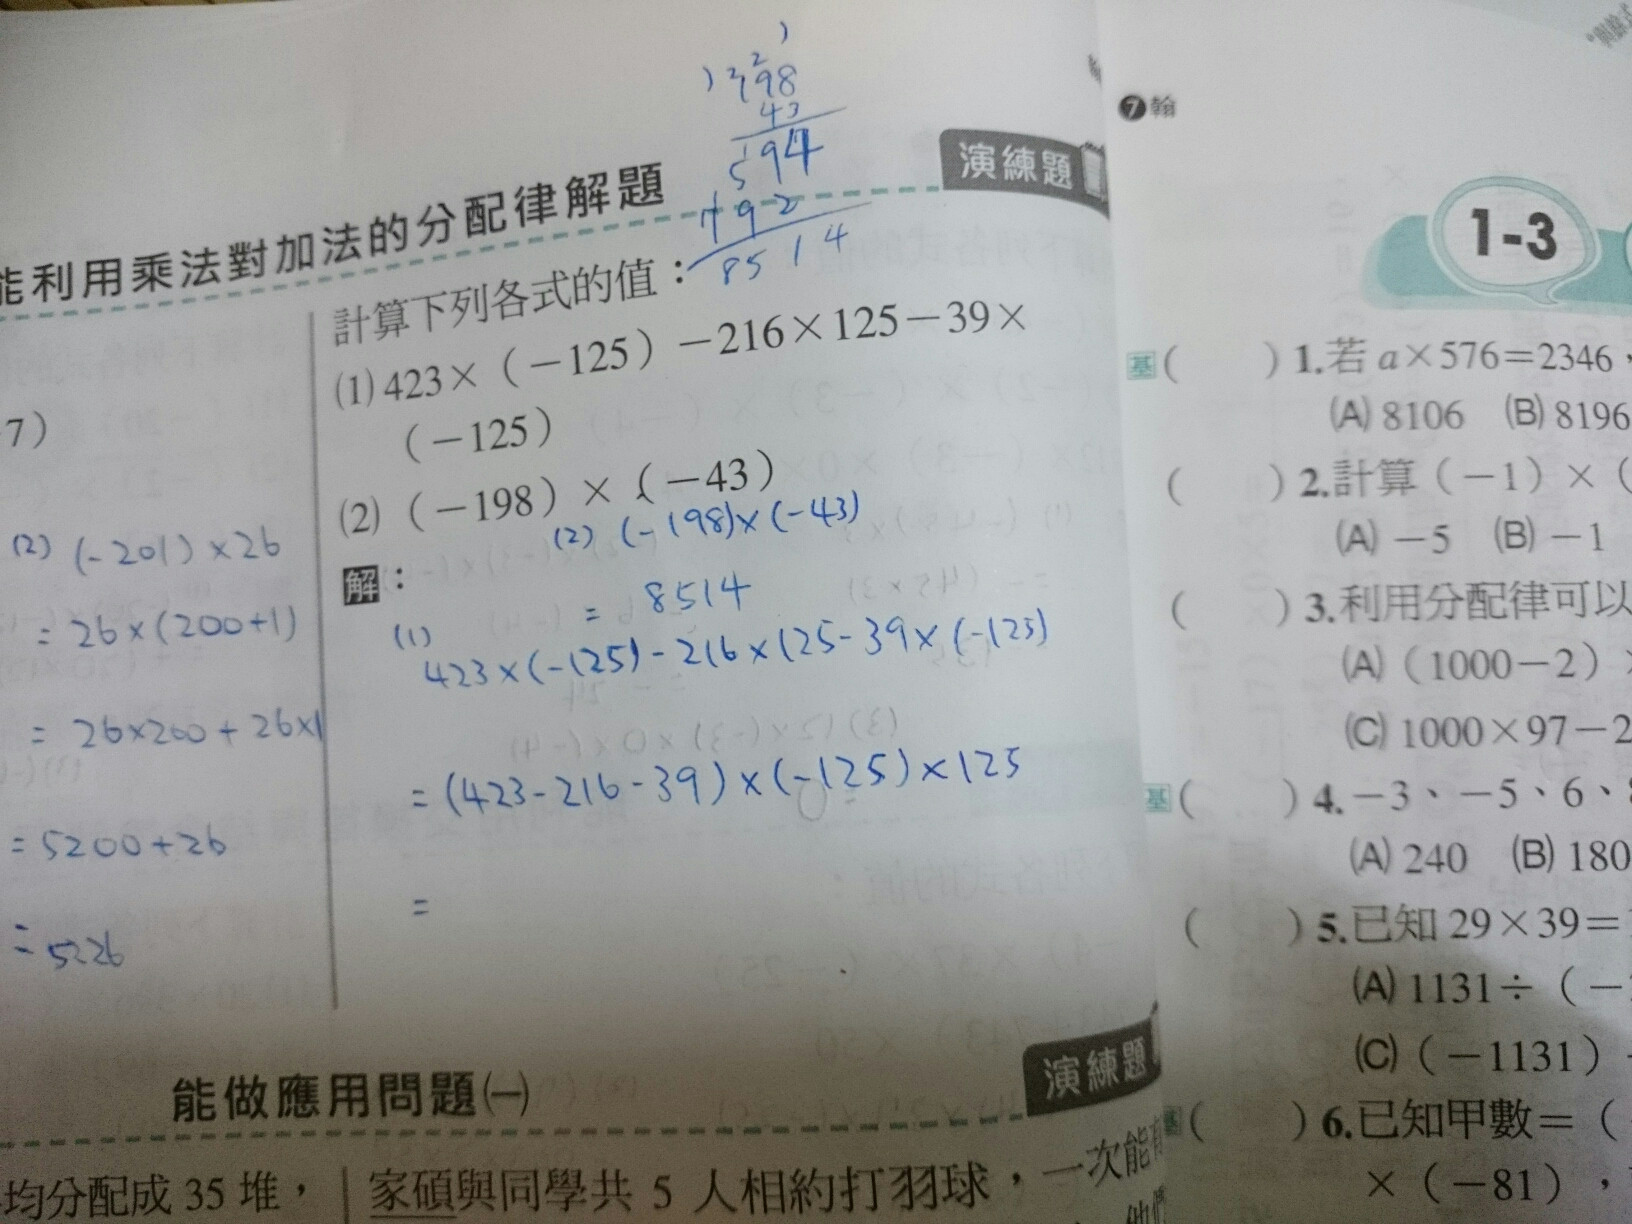 198
43
594
792
8514
能利用乘法對加法的分配律解題
演練題
計算下列各式的值：
(1) 423×（－125）－216×125－39×
（－125）
(2)（－198）×（－43）
(2) (-198)×(-43)
解：
= 8514
(1)
423×(-125)-216×125-39×(-125)
=(423-216-39)×(-125)×125
=
7）
(2) (-201)×26
= 26×(200+1)
= 26×200+26×1
= 5200+26
= 5226
能做應用問題㈠
演練題
均分配成 35 堆，
家碩與同學共 5 人相約打羽球，一次能
7 翰
1-3
基（ ）1.若 a×576＝2346，
(A) 8106 (B) 8196
（ ）2.計算（－1）×（
(A) －5 (B) －1
（ ）3.利用分配律可以
(A)（1000－2）×
(C) 1000×97－2
基（ ）4.－3、－5、6、
(A) 240 (B) 180
（ ）5.已知 29×39＝
(A) 1131÷（－
(C)（－1131）
（ ）6.已知甲數＝（
×（－81），